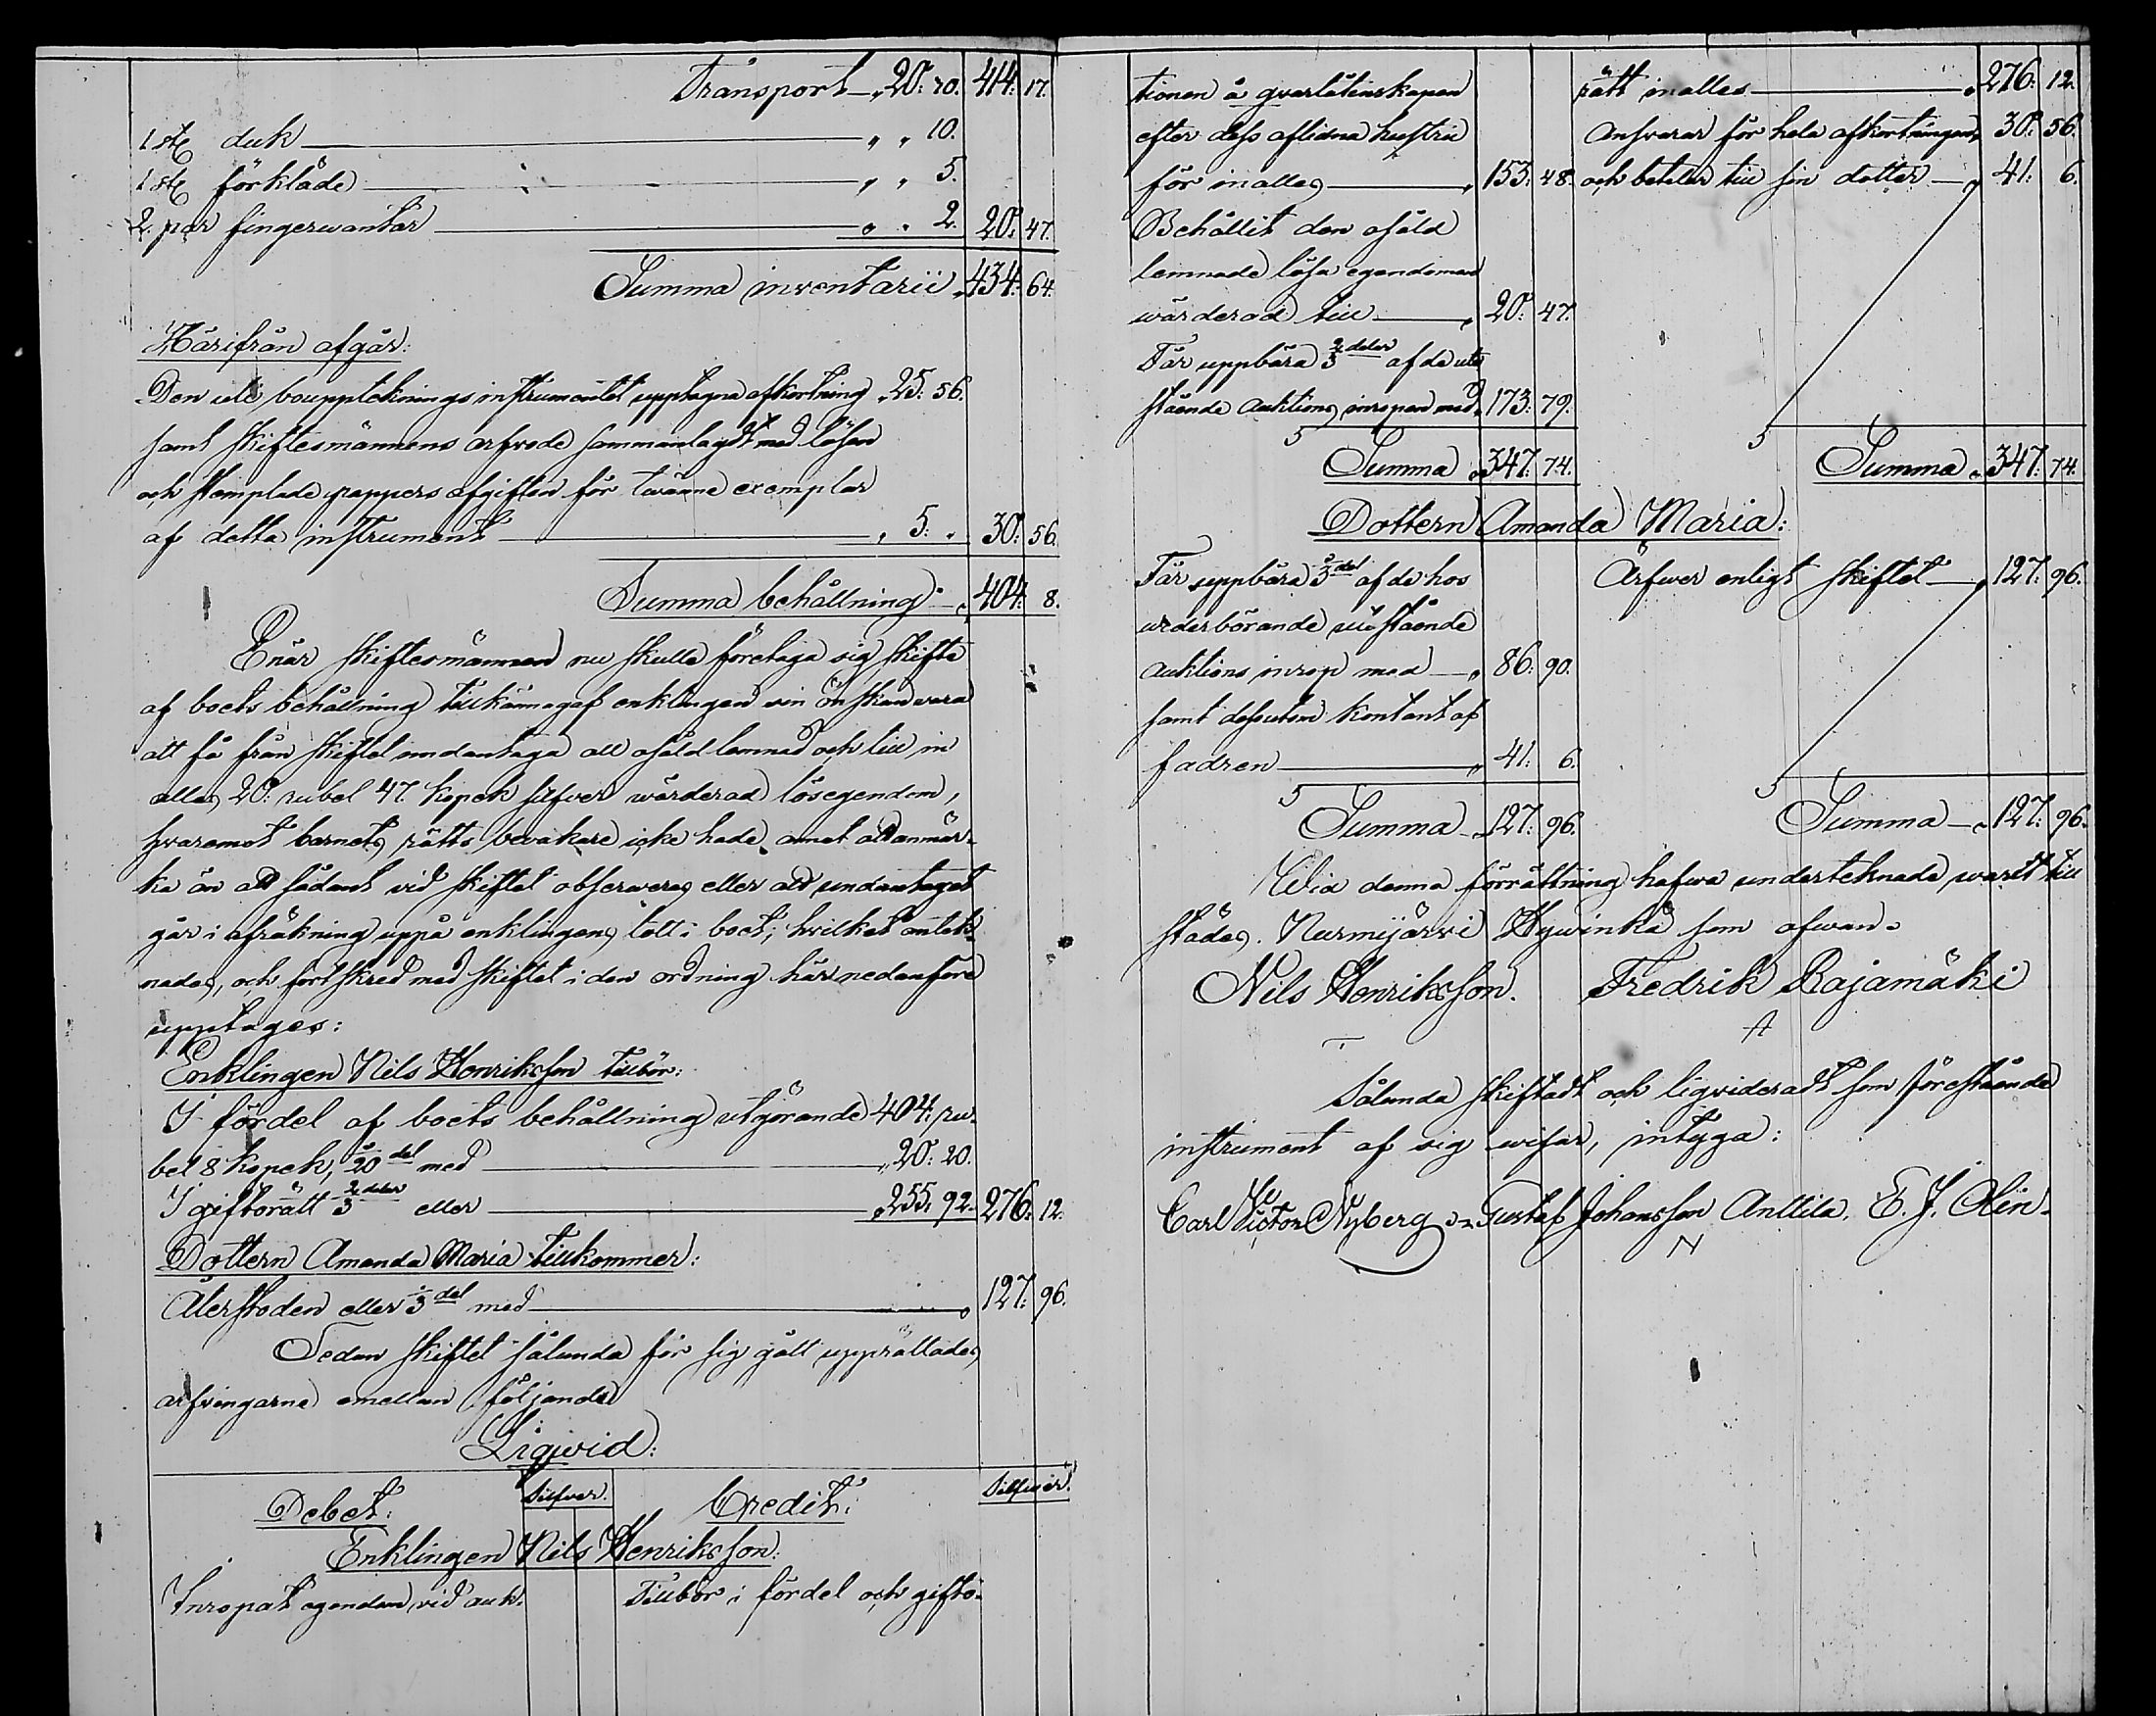 Transport „ 20: 70. 414: 17.
1 st. duk „ „ 10.
1 st. förkläde „ „ 5.
2. par fingerwantar „ „ 2. 20: 47.
Summa inventarii „ 434: 64.
Härifrån afgår:
Den uti bouppteknings instrumentet upptagna afkortning „ 25: 56.
samt skiftesmännens arfvode sammanlagdt med lösen
och stemplade pappers afgiften för twänne exemplar
af detta instrument „ 5: „ 30: 56.
Summa behållning „ 404: 8.
Enär skiftesmännen nu skulle företaga sig skifte
af boets behållning tillkännagaf enklingen sin önskan vara
att få från skiftet undantaga all osåld lemnad och till in
alles 20: rubel 47. kopek silfver wärderad lösegendom,
hvaremot barnets rätts bevakare icke hade annat att anmär-
ka än att sådant vid skiftet observeras eller att undantaget
går i afräkning uppå enklingens lott i boet; hvilket antek-
nades, och fortskred med skiftet i den ordning här nedanföre
upptages:
Enklingen Nils Henriksson tillbör:
I fördel af boets behållning utgörande 404: ru-
bel 8 kopek, 1/20 del med „ 20: 20.
I giftorätt 2/3 delar eller „ 255: 92. 276: 12.
Dottern Amanda Maria tillkommer:
Återstoden eller 1/3 del med „ 127: 96.
Sedan skiftet sålunda för sig gått upprättades
arfvingarne emellan följande
Liqwid:
Debet: Silfver. Credit: Silfwer.
Enklingen Nils Henriksson:
Inropat egendom vid auk- Tillbör i fördel och gifto-
tionen å qvarlåtenskapen
efter dess aflidna hustru
för inalles „ 153: 48.
Behållit den osåld
lemnade lösa egendomen
wärderad till „ 20: 47.
Får uppbära 2/3 delar af de ute
stående auktions inropen med „ 173: 79.
Summa „ 347: 74.
rätt inalles „ 276: 12.
Ansvarar för hela afkortningen „ 30: 56.
och betalar till sin dotter „ 41: 6.
Summa „ 347: 74.
Dottern Amanda Maria:
Får uppbära 1/3 del af de hos
wederbörande utestående
auktions inrop med „ 86: 90.
samt dessutom kontant af
fadren „ 41: 6.
Summa „ 127: 96.
Ärfwer enligt skiftet „ 127: 96.
Summa „ 127: 96.
Wid denna förrättning hafwa undertecknade warit till
städes. Nurmijärvi Hywinkä som ofwan.
Nils Henriksson. Fredrik Rajamäki
Sålunda skiftadt och liqvideradt som förestående
instrument af sig wisar, intyga:
Carl Victor Nyberg Gustaf Johansson Anttila. E. J. Olin.